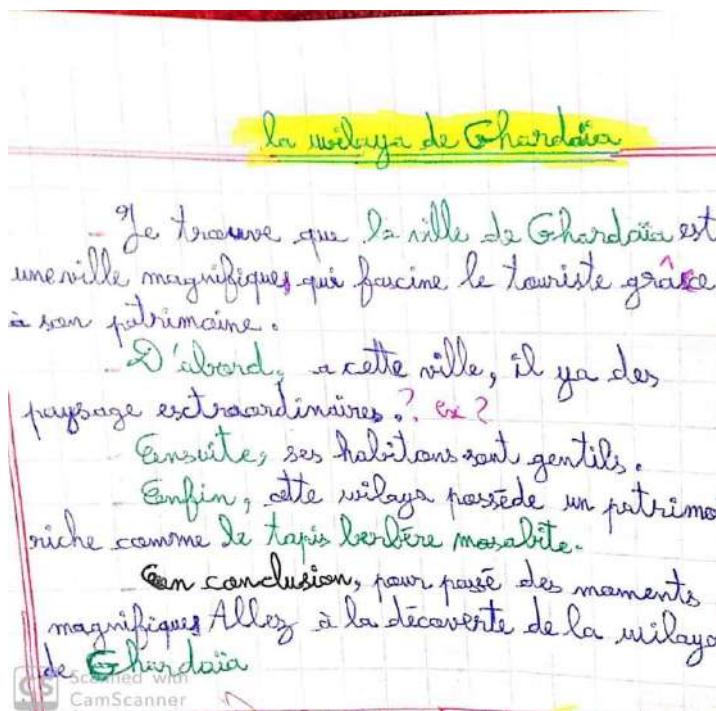 la wilaya de Ghardaïa
Je trouve que la ville de Ghardaïa est
une ville magnifiques, qui fascine le touriste grâce
à son patrimoine.
D'abord, a cette ville, il ya des
paysage esctraordinaires.? ex?
Ensuite, ses habitans sont gentils.
Enfin, cette wilaya possède un patrimo
riche comme le tapis berbère mosabite.
En conclusion, pour passé des moments
magnifiques Allez à la décaverte de la wilaya
de Ghardaïa
CS Scanned with
CamScanner